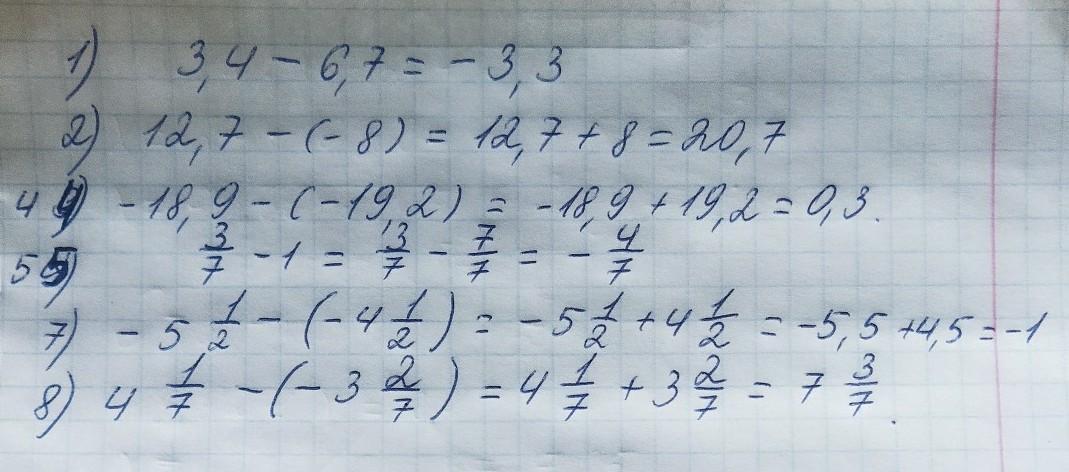 1) 3,4 - 6,7 = - 3,3
2) 12,7 - (-8) = 12,7 + 8 = 20,7
4 4) -18,9 - (-19,2) = -18,9 + 19,2 = 0,3.
5 5) 3/7 - 1 = 3/7 - 7/7 = - 4/7
7) - 5 1/2 - (-4 1/2) = -5 1/2 + 4 1/2 = -5,5 + 4,5 = -1
8) 4 1/7 - (- 3 2/7) = 4 1/7 + 3 2/7 = 7 3/7.